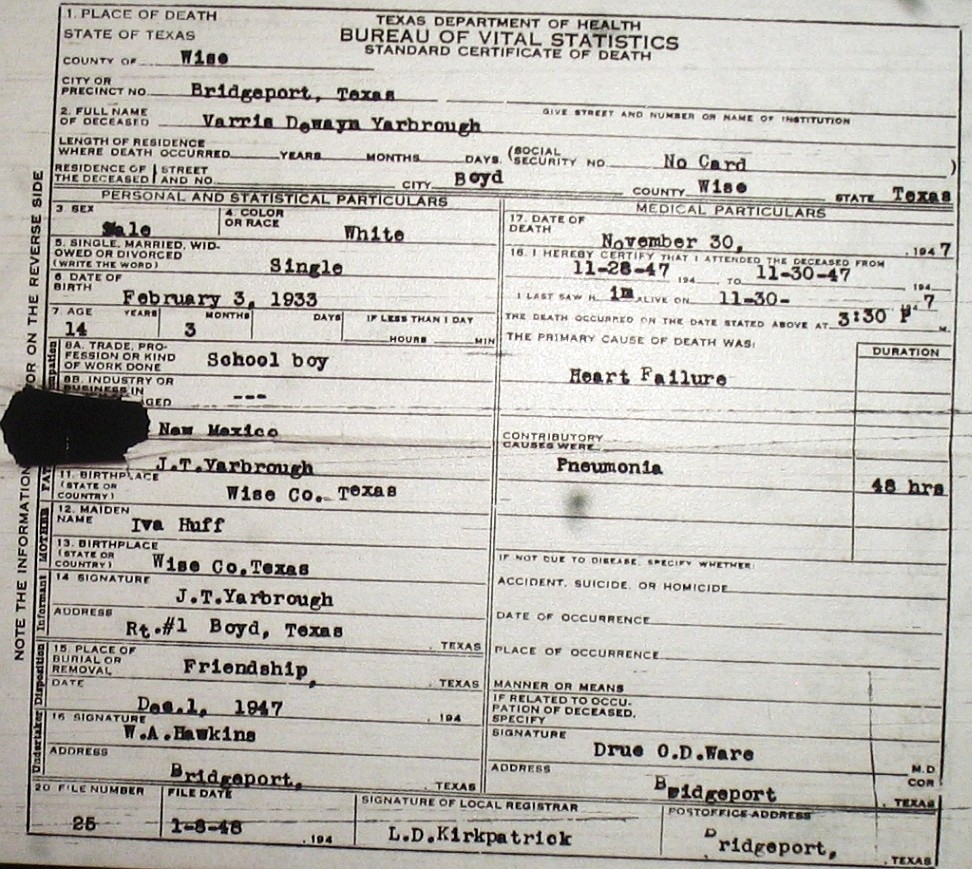 1. PLACE OF DEATH
STATE OF TEXAS
TEXAS DEPARTMENT OF HEALTH
BUREAU OF VITAL STATISTICS
STANDARD CERTIFICATE OF DEATH
COUNTY OF Wise
CITY OR
PRECINCT NO. Bridgeport, Texas
GIVE STREET AND NUMBER OR NAME OF INSTITUTION
2. FULL NAME
OF DECEASED Varris Dewayn Yarbrough
LENGTH OF RESIDENCE
WHERE DEATH OCCURRED YEARS MONTHS DAYS. (SOCIAL
SECURITY NO. No Card )
RESIDENCE OF STREET
THE DECEASED AND NO. CITY Boyd COUNTY Wise STATE Texas
PERSONAL AND STATISTICAL PARTICULARS
3. SEX
Male
4. COLOR
OR RACE White
5. SINGLE, MARRIED, WID-
OWED OR DIVORCED
(WRITE THE WORD) Single
6. DATE OF
BIRTH
February 3, 1933
7. AGE YEARS MONTHS DAYS IF LESS THAN 1 DAY
14 3 HOURS MIN
8A. TRADE, PRO-
FESSION OR KIND
OF WORK DONE School boy
8B. INDUSTRY OR
BUSINESS IN
---
New Mexico
J.T.Yarbrough
11. BIRTHPLACE
(STATE OR
COUNTRY) Wise Co. Texas
12. MAIDEN
NAME Iva Huff
13. BIRTHPLACE
(STATE OR
COUNTRY) Wise Co.Texas
14 SIGNATURE
J.T.Yarbrough
ADDRESS
Rt.#1 Boyd, Texas . TEXAS
15. PLACE OF
BURIAL OR
REMOVAL Friendship, . TEXAS
DATE
Dec.1, 1947 . 194
16 SIGNATURE
W.A.Hawkins
ADDRESS
Bridgeport, . TEXAS
MEDICAL PARTICULARS
17. DATE OF
DEATH
November 30, . 1947
18. I HEREBY CERTIFY THAT I ATTENDED THE DECEASED FROM
11-28-47 194 TO 11-30-47 194
I LAST SAW H im ALIVE ON 11-30- 1947
THE DEATH OCCURRED ON THE DATE STATED ABOVE AT 3:30 P M.
THE PRIMARY CAUSE OF DEATH WAS: DURATION
Heart Failure
CONTRIBUTORY
CAUSES WERE
Pneumonia
48 hrs
IF NOT DUE TO DISEASE, SPECIFY WHETHER:
ACCIDENT, SUICIDE, OR HOMICIDE
DATE OF OCCURRENCE
PLACE OF OCCURRENCE
MANNER OR MEANS
IF RELATED TO OCCU-
PATION OF DECEASED,
SPECIFY
SIGNATURE
Drue O.D.Ware
M.D
ADDRESS COR
Bridgeport . TEXAS
20 FILE NUMBER
25
FILE DATE
1-8-48 . 194
SIGNATURE OF LOCAL REGISTRAR
L.D.Kirkpatrick
POSTOFFICE ADDRESS
Bridgeport, . TEXAS
NOTE THE INFORMATION
FOR ON THE REVERSE SIDE
MOTHER
Informant
Disposition
Undertaker